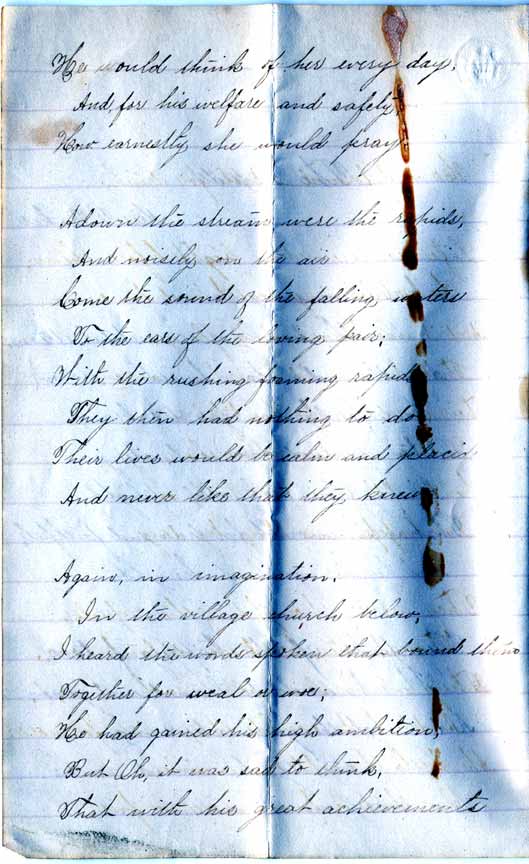 He would think of her every day,
And, for his welfare and safety
How earnestly she would pray
Adown the stream were the rapids,
And noisely on the air
Come the sound of the falling waters
To the ears of the loving pair;
With the rushing foaming rapids
They then had nothing to do
Their lives would be calm and placid
And never like that they knew
Again, in imagination,
In the village church below,
I heard the words spoken that bound them
Together for weal or woe;
He had gained his high ambition,
But Oh, it was sad to think,
That with his great achievements